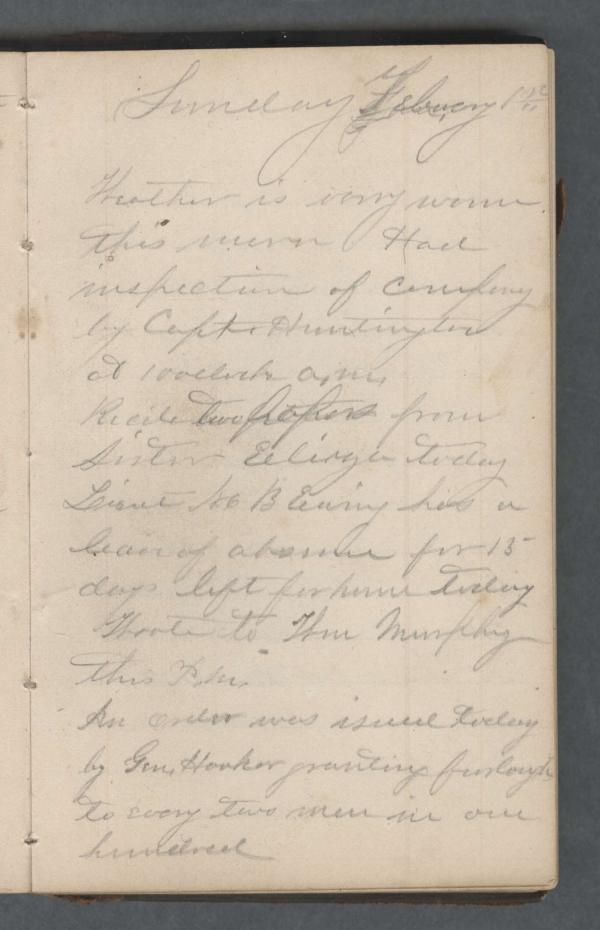 Sunday February 1st
Weather is very warm
this morn Had
inspection of company
by Capt. Huntington
at 10 oclock a.m.
Recite two papers from
Sister Eeliza today
Lieut B Ewing has a
leave of absence for 15
days left for home today
Wrote to Wm Murphy
this P.M.
An order was issued today
by Gen. Hooker granting furloughs
to every two men in one
hundred